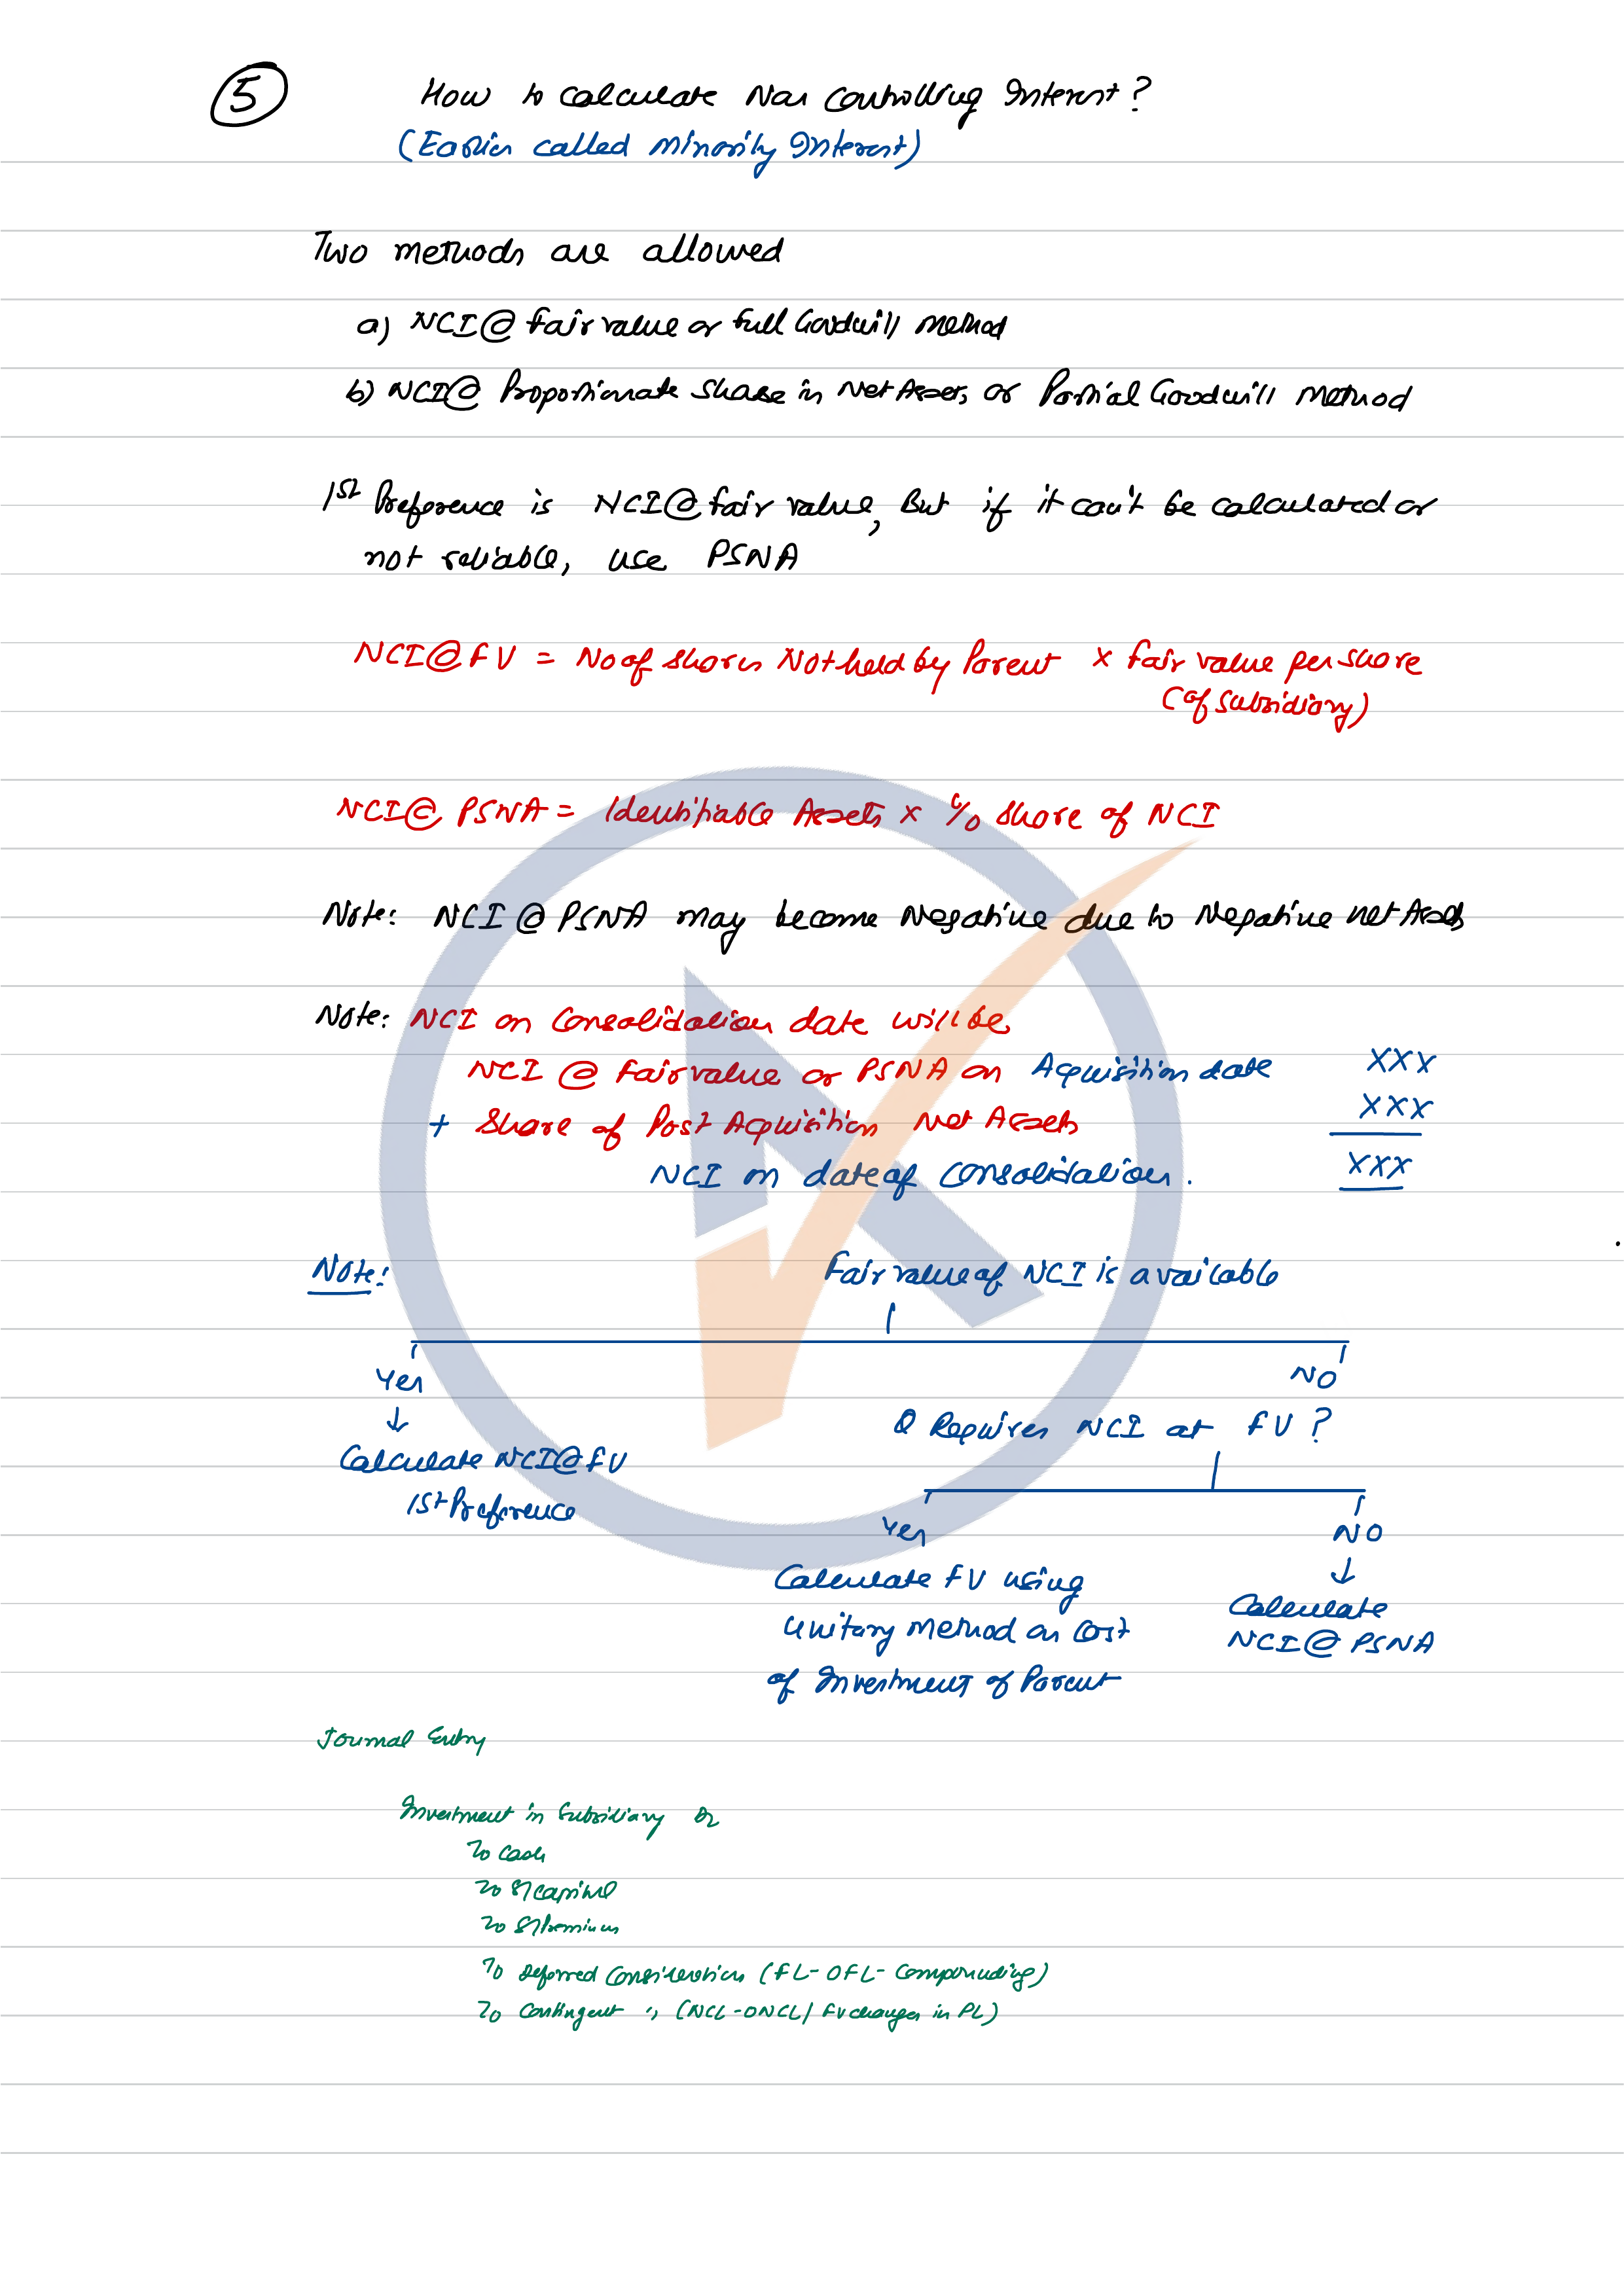 5 How to calculate Non Controlling Interest?
(Earlier called Minority Interest)
Two methods are allowed
a) NCI@ Fair value or Full Goodwill Method
b) NCI@ Proportionate Share in Net Assets or Partial Goodwill Method
1st Preference is NCI@ fair value, But if it can't be calculated or
not reliable, use PSNA
NCI@FV = No of shares Not held by Parent x fair value per share
(of subsidiary)
NCI@ PSNA = Identifiable Assets x % share of NCI
Note: NCI @ PSNA may become Negative due to Negative net Assets
Note: NCI on Consolidation date will be
NCI @ Fair value or PSNA on Acquisition date XXX
+ Share of Post Acquisition Net Assets XXX
NCI on date of Consolidation. XXX
Note: Fair value of NCI is available
Yes NO
↓ Q Requires NCI at FV?
Calculate NCI@FV
1st Preference
Yes NO
↓
Calculate FV using Calculate
Unitary Method on Cost NCI@ PSNA
of Investment of Parent
Journal Entry
Investment in Subsidiary Dr
To Cash
To S/Capital
To S/Premium
To Deferred Consideration (FL-OFL-Compounding)
To Contingent " (NCL-ONCL/ FV changes in PL)